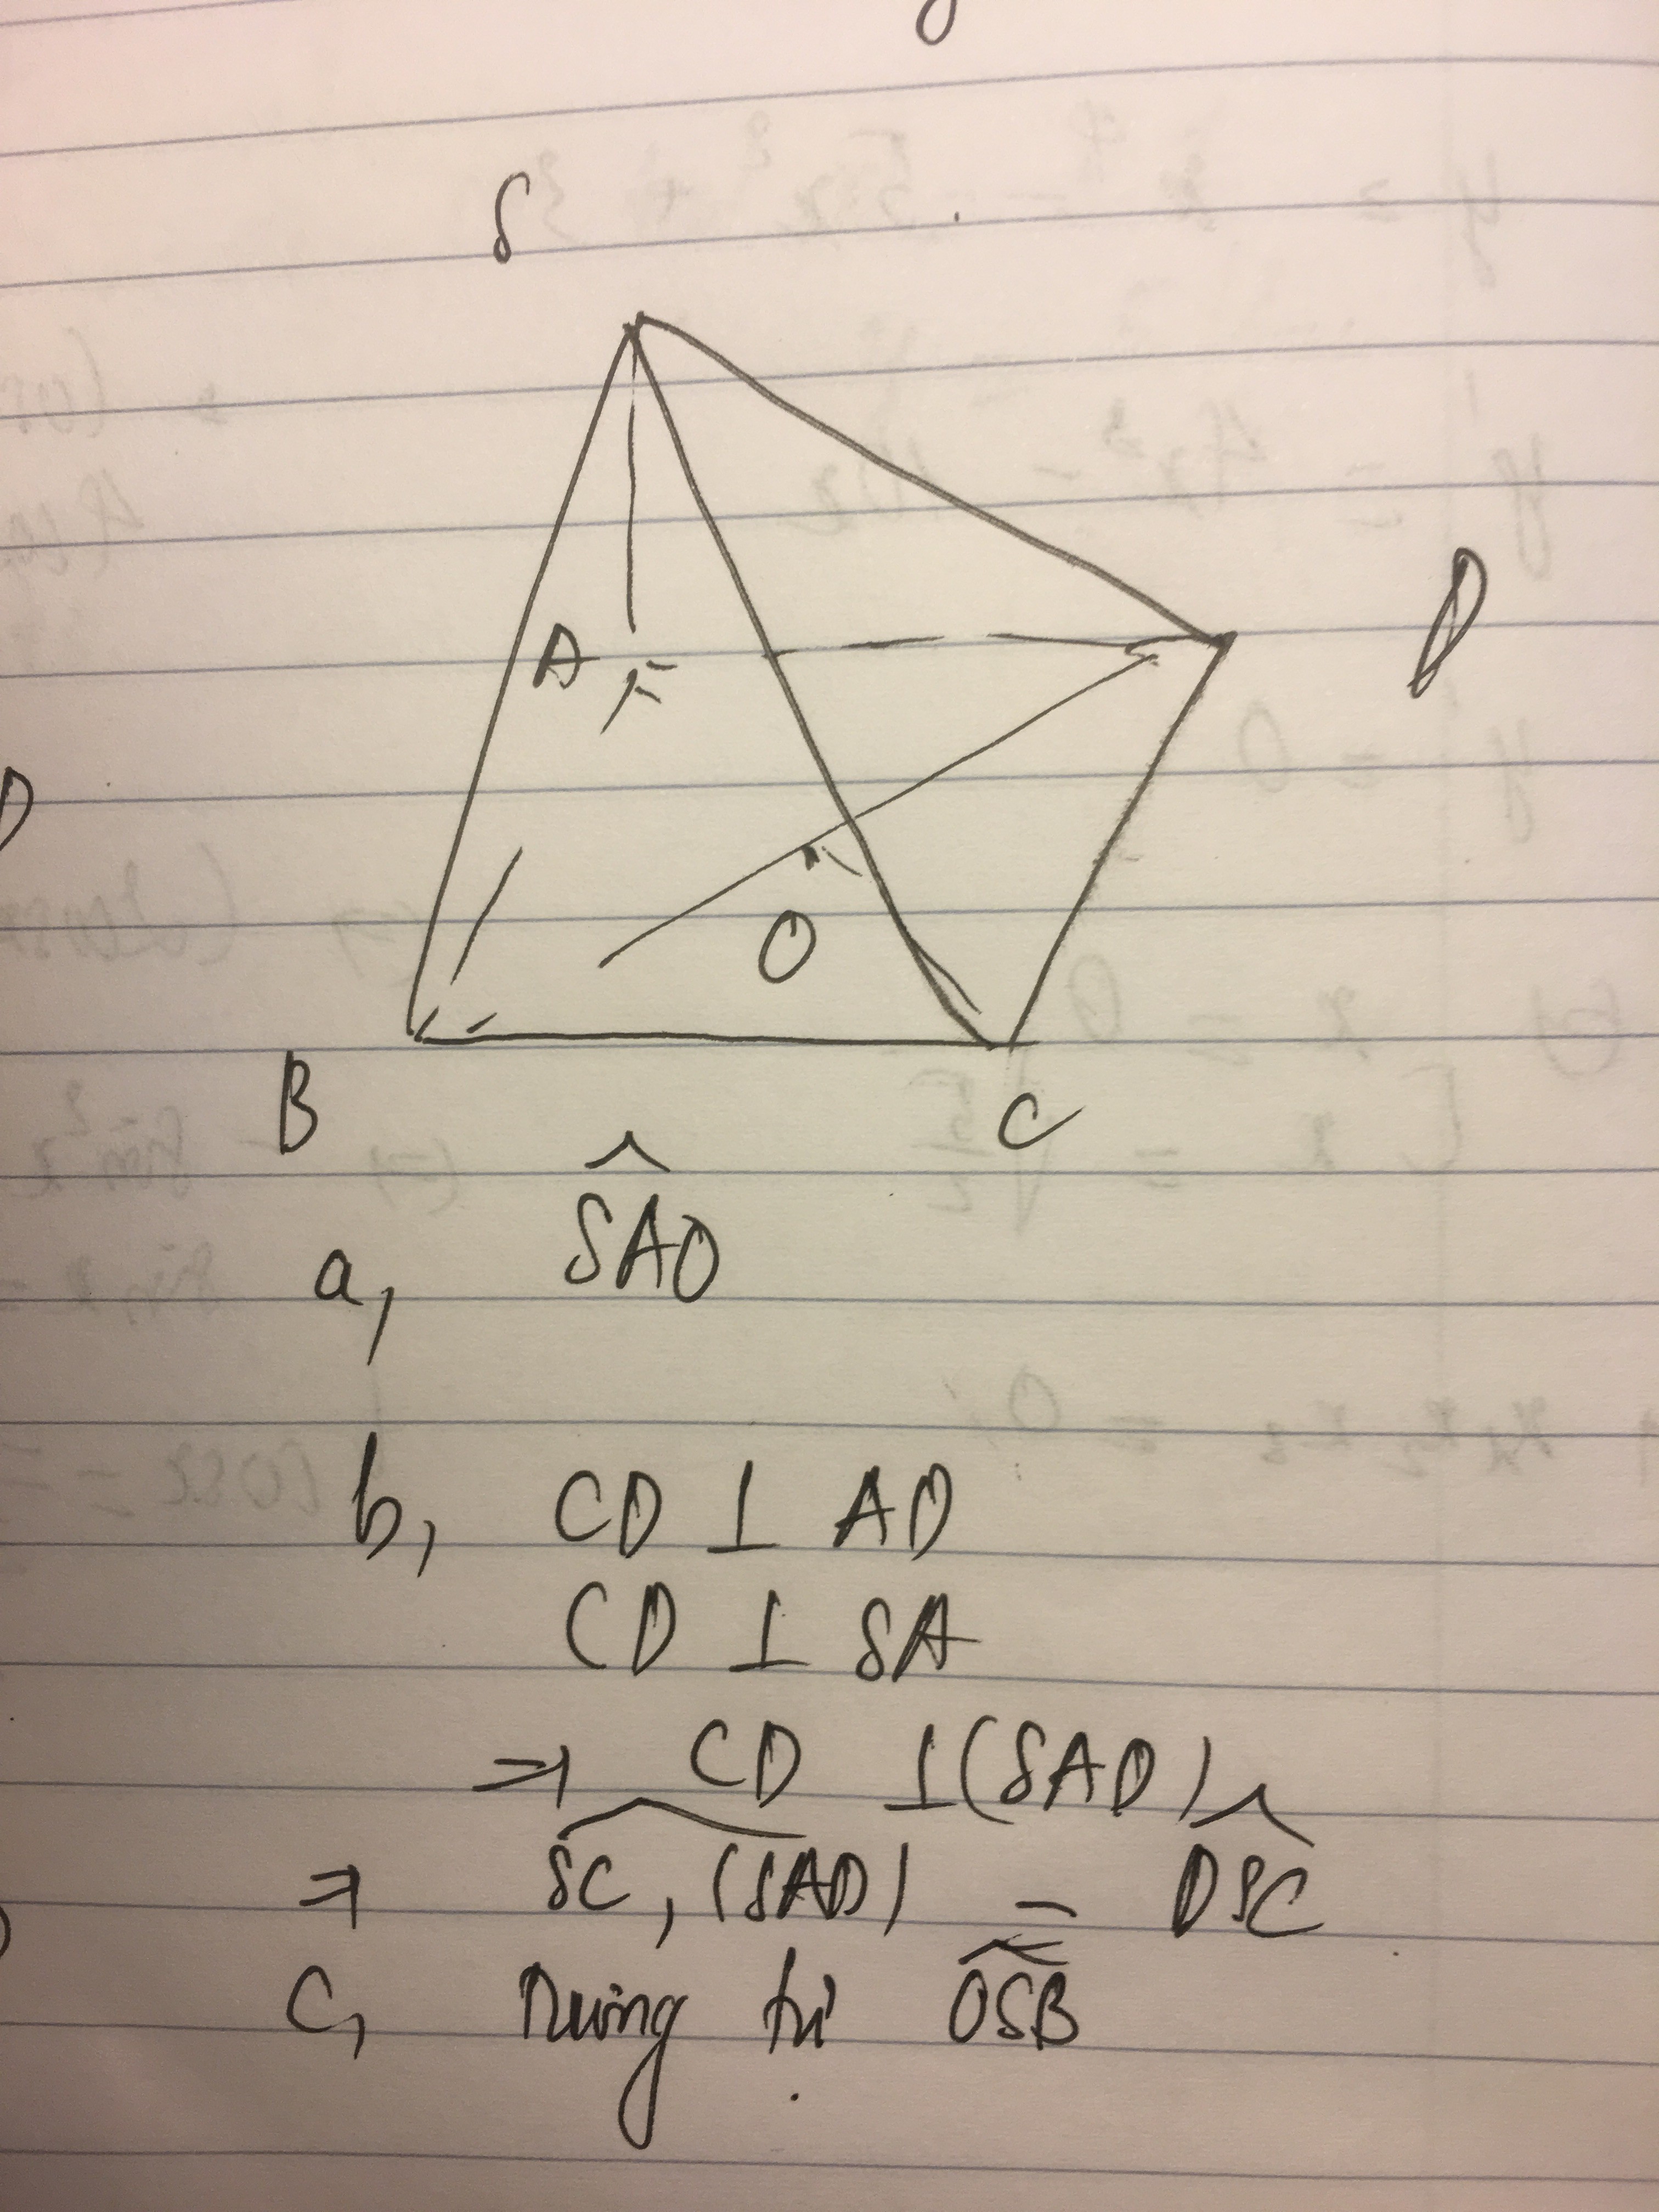 S
D
A
O
B
C
a, \widehat{SAO}
b, CD ⊥ AD
CD ⊥ SA
⇒ CD ⊥ (SAD)
⇒ \widehat{SC, (SAD)} = \widehat{DSC}
C, Tương tự \widehat{OSB}